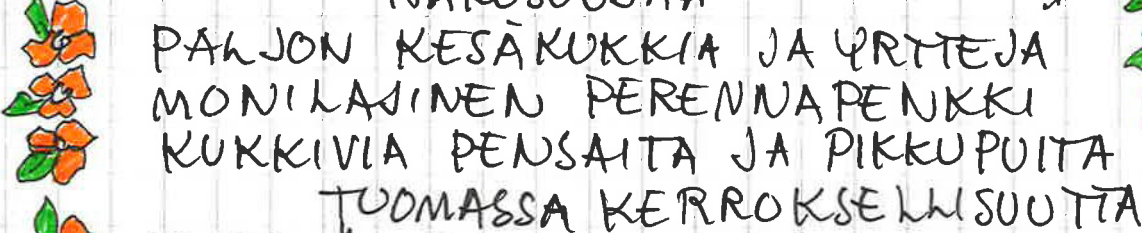 PALJON KESÄKUKKIA JA YRTTEJA
MONILAJINEN PERENNAPENKKI
KUKKIVIA PENSAITA JA PIKKUPUITA
TUOMASSA KERROKSELLISUUTTA